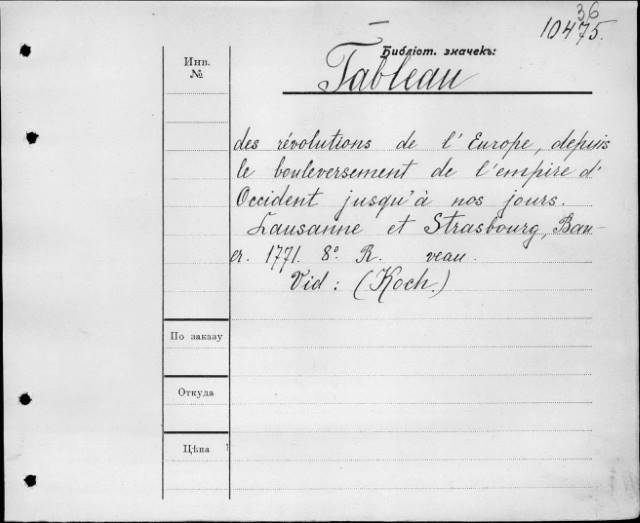 36
10475.
Инв.
№
Библіот. значекъ:
Tableau
des révolutions de l'Europe, depuis
le bouleversement de l'empire d'
Occident jusqu'à nos jours.
Lausanne et Strasbourg, Bau-
er. 1771. 8º. R. veau.
Vid: (Koch.)
По заказу
Откуда
Цѣна